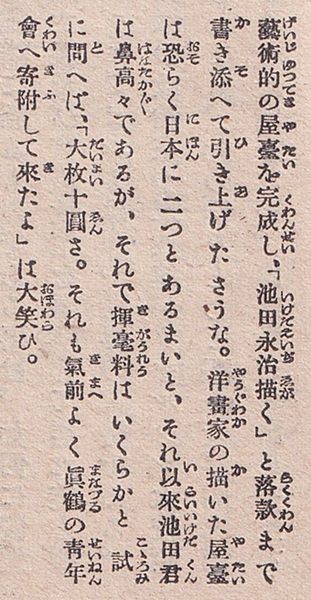 藝術的の屋臺を完成し、「池田永治描く」と落款まで
書き添へて引き上げたさうな。洋畫家の描いた屋臺
は恐らく日本に二つとあるまいと、それ以來池田君
は鼻高々であるが、それで揮毫料はいくらかと試
に問へば、「大枚十圓さ。それも氣前よく眞鶴の青年
會へ寄附して來たよ」は大笑ひ。